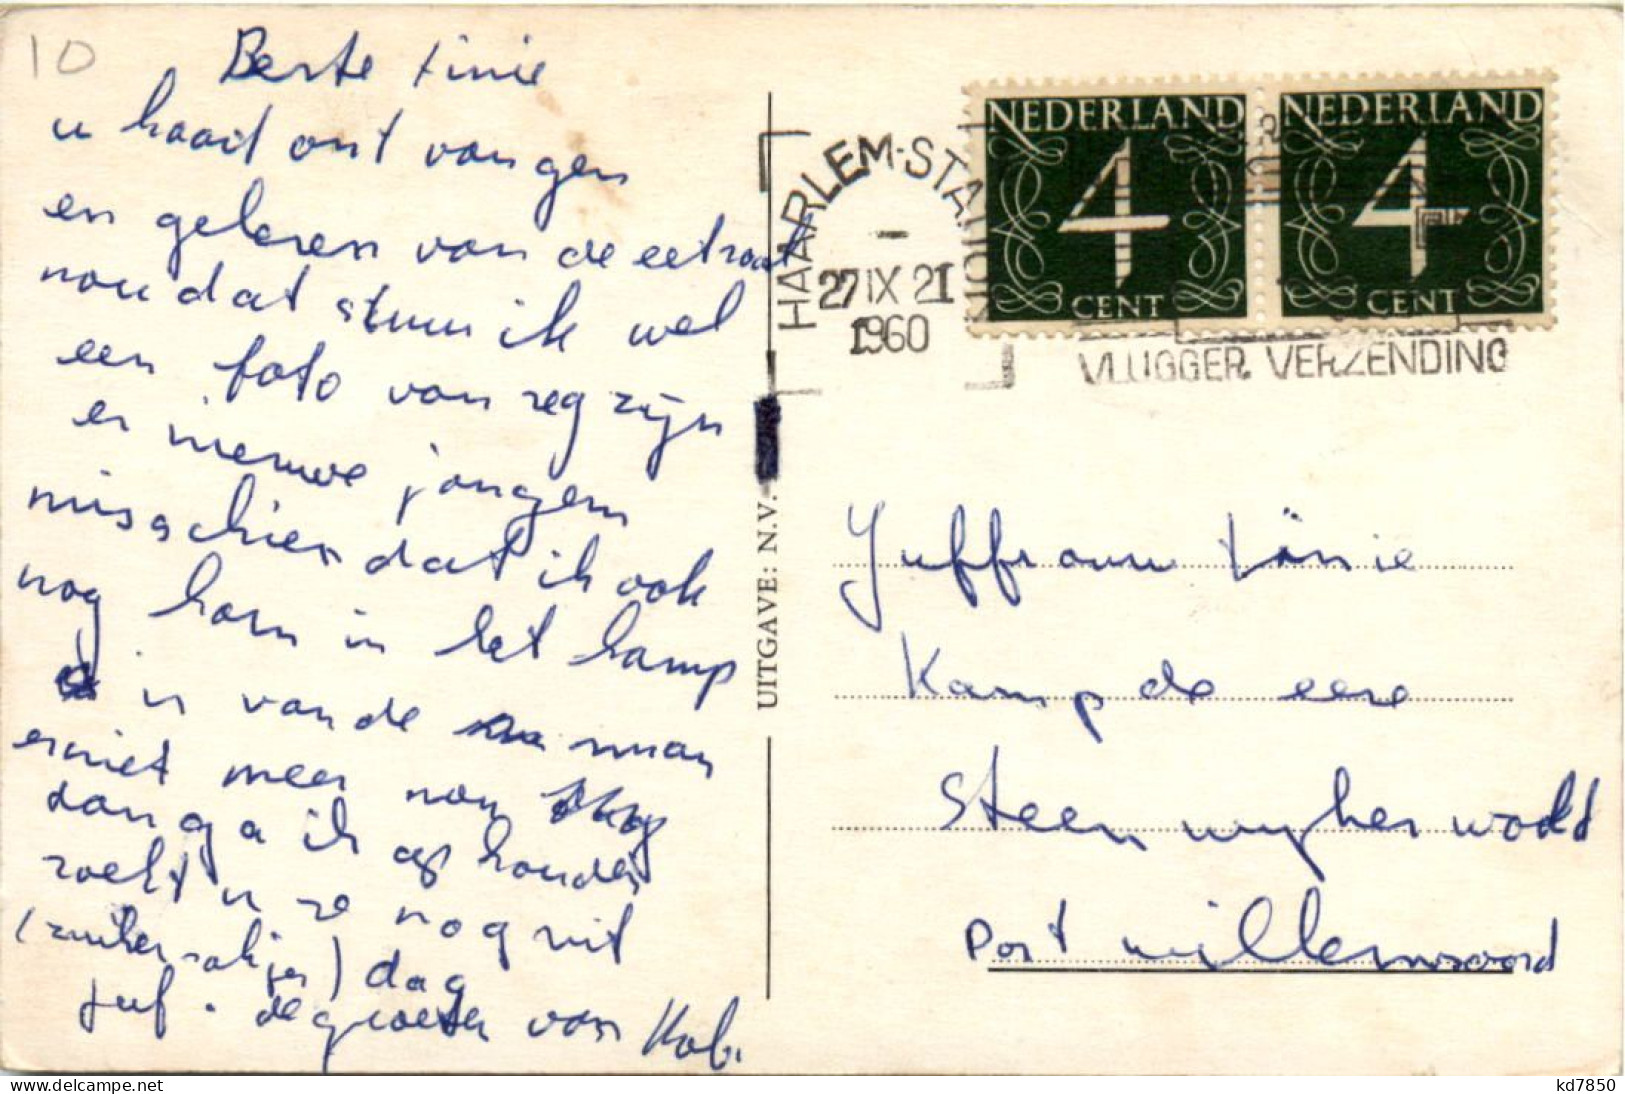 10
Beste tinie
u kaart ont vangen
en gelezen van de eetzaal
nou dat stuur ik wel
een foto van zeg zijn
er nieuwe jongens
misschien dat ik ook
nog kom in het kamp
is van de man
er niet meer nou
dan ga ik op houden
zoekt u ze nog uit
(suikerzakjes) dag
juf. de groeten van Kobi
HAARLEM-STATION
27 IX 21
1960
NEDERLAND
4
CENT
NEDERLAND
4
CENT
VLUGGER VERZENDING
UITGAVE: N.V.
Juffrouw tinie
Kamp de eese
Steenwijkerwold
Post Willemsoord
kd7850